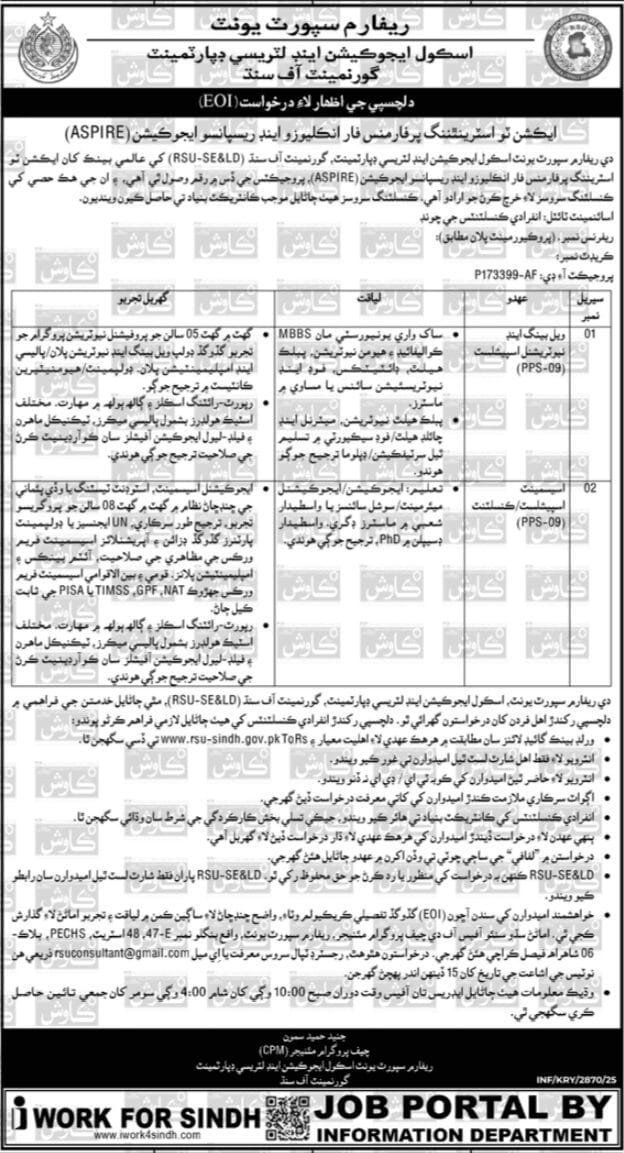 ريفارم سپورٽ يونٽ
اسڪول ايجوڪيشن اينڊ لٽريسي ڊپارٽمينٽ
گورنمينٽ آف سنڌ
دلچسپي جي اظهار لاءِ درخواست (EOI)
ايڪشن ٽو اسٽرينٿننگ پرفارمنس فار انڪليوزو اينڊ ريسپانسو ايجوڪيشن (ASPIRE)
دي ريفارم سپورٽ يونٽ اسڪول ايجوڪيشن اينڊ لٽريسي ڊپارٽمينٽ، گورنمينٽ آف سنڌ (RSU-SE&LD) کي عالمي بينڪ کان ايڪشن ٽو
اسٽرينٿننگ پرفارمنس فار انڪليوزو اينڊ ريسپانسو ايجوڪيشن (ASPIRE)، پروجيڪٽس جي ڏس ۾ رقم وصول ٿي آهي، ۽ ان جي هڪ حصي کي
ڪنسلٽنگ سروسز لاءِ خرچ ڪرڻ جو ارادو آهي، ڪنسلٽنگ سروسز هيٺ ڄاڻايل موجب ڪانٽريڪٽ بنياد تي حاصل ڪيون وينديون.
اسائنمينٽ ٽائٽل: انفرادي ڪنسلٽنٽس جي چونڊ
ريفرنس نمبر: (پروڪيورمينٽ پلان مطابق):
ڪريڊٽ نمبر:
پروجيڪٽ آءِ ڊي: P173399-AF
سيريل نمبر
عهدو
لياقت
گهربل تجربو
01
ويل بينگ اينڊ
نيوٽريشنل اسپيشلسٽ
(PPS-09)
• ساک واري يونيورسٽي مان MBBS
ڪواليفائيڊ ۽ هيومن نيوٽريشن، پبلڪ
هيلٿ، ڊائٽيٽڪس، فوڊ اينڊ
نيوٽريشن سائنس يا مساوي ۾
ماسٽرز.
• پبلڪ هيلٿ نيوٽريشن، ميٽرنل اينڊ
چائلڊ هيلٿ/فوڊ سيڪورٽي ۾ تسليم
ٿيل سرٽيفڪيشن/ڊپلوما ترجيح جوڳو
هوندو.
• گهٽ ۾ گهٽ 05 سالن جو پروفيشنل نيوٽريشن پروگرام جو
تجربو گڏوگڏ ڊولپ ويل بينگ اينڊ نيوٽريشن پلان/پاليسي
اينڊ امپليمينٽيشن پلان. ڊولپمينٽ/هيومنيٽيرين
ڪانٽيسٽ ۾ ترجيح جوڳو.
• رپورٽ-رائٽنگ اسڪلز ۽ ڳالهه ٻولهه ۾ مهارت، مختلف
اسٽيڪ هولڊرز بشمول پاليسي ميڪرز، ٽيڪنيڪل ماهرن
۽ فيلڊ-ليول ايجوڪيشن آفيشلز سان ڪوآرڊينيٽ ڪرڻ
جي صلاحيت ترجيح جوڳي هوندي.
02
اسيسمينٽ
اسپيشلسٽ/ڪنسلٽنٽ
(PPS-09)
• تعليم: ايجوڪيشن/ايجوڪيشنل
ميئرمينٽ/سوشل سائنسز يا واسطيدار
شعبي ۾ ماسٽرز ڊگري. واسطيدار
ڊسيپلن ۾ PhD، ترجيح جوڳي هوندي.
• ايجوڪيشنل اسيسمينٽ، اسٽوڊنٽ ٽيسٽنگ يا وڏي پئماني
جي چنڊڇاڻ نظام ۾ گهٽ ۾ گهٽ 08 سالن جو پروگريسو
تجربو، ترجيح طور سرڪاري، UN ايجنسيز يا ڊولپمينٽ
پارٽنرز گڏوگڏ ڊزائن ۽ آپريشنلائز اسيسمينٽ فريم
ورڪس جي مظاهري جي صلاحيت، آئٽم بينڪس ۽
امپليمينٽيشن پلانز. قومي ۽ بين الاقوامي اسيسمينٽ فريم
ورڪس جهڙوڪ TIMSS ,GPF ,NAT يا PISA جي ثابت
ڪيل ڄاڻ.
• رپورٽ-رائٽنگ اسڪلز ۽ ڳالهه ٻولهه ۾ مهارت، مختلف
اسٽيڪ هولڊرز بشمول پاليسي ميڪرز، ٽيڪنيڪل ماهرن
۽ فيلڊ-ليول ايجوڪيشن آفيشلز سان ڪوآرڊينيٽ ڪرڻ
جي صلاحيت ترجيح جوڳي هوندي.
دي ريفارم سپورٽ يونٽ، اسڪول ايجوڪيشن اينڊ لٽريسي ڊپارٽمينٽ، گورنمينٽ آف سنڌ (RSU-SE&LD)، مٿي ڄاڻايل خدمتن جي فراهمي ۾
دلچسپي رکندڙ اهل فردن کان درخواستون گهرائي ٿو. دلچسپي رکندڙ انفرادي ڪنسلٽنٽس کي هيٺ ڄاڻايل لازمي فراهم ڪرڻو پوندو:
• ورلڊ بينڪ گائيڊ لائنز سان مطابقت ۾ هرهڪ عهدي لاءِ اهليت معيار ۽ ToRs www.rsu-sindh.gov.pk تي ڏسي سگهجن ٿا.
• انٽرويو لاءِ فقط اهل شارٽ لسٽ ٿيل اميدوارن کي طور ڪيو ويندو.
• انٽرويو لاءِ حاضر ٿيڻ اميدوارن کي ڪو به ٽي اي/ڊي اي نه ڏنو ويندو.
• اڳواٽ سرڪاري ملازمت ڪندڙ اميدوارن کي کاتي معرفت درخواست ڏيڻ گهرجي.
• انفرادي ڪنسلٽنٽس کي ڪانٽريڪٽ بنياد تي هائر ڪيو ويندو، جيڪي تسلي بخش ڪارڪردگي جي شرط سان وڌائي سگهجن ٿا.
• ٻنهي عهدن لاءِ درخواست ڏيندڙ اميدوارن کي هرهڪ عهدي لاءِ ڌار درخواست ڏيڻ لاءِ گهربل آهي.
• درخواستن ۾ ”لفافي“ جي ساڄي چوٽي تي وڏن اکرن ۾ عهدو ڄاڻايل هئڻ گهرجي.
• RSU-SE&LD ڪنهن به درخواست کي منظور يا رد ڪرڻ جو حق محفوظ رکي ٿو. RSU-SE&LD پاران فقط شارٽ لسٽ ٿيل اميدوارن سان رابطو
ڪيو ويندو.
• خواهشمند اميدوارن کي سندن آڇون (EOI) گڏوگڏ تفصيلي ڪريڪيولم وٽاءِ، واضح چنڊڇاڻ لاءِ ساڳين ڪمن ۾ لياقت ۽ تجربو اماڻڻ لاءِ گذارش
ڪجي ٿي. اماڻڻ سڌو سنئو آفيس آف دي چيف پروگرام مئنيجر، ريفارم سپورٽ يونٽ، واقع بنگلو نمبر 47-E، 48 اسٽريٽ، PECHS، بلاڪ-
06 شاهراهه فيصل ڪراچي هئڻ گهرجي. درخواستون هٿوهٿ، رجسٽرڊ ٽپال سروس معرفت يا اِي ميل rsuconsultant@gmail.com ذريعي هن
نوٽيس جي اشاعت جي تاريخ کان 15 ڏينهن اندر پهچڻ گهرجن.
• وڌيڪ معلومات هيٺ ڄاڻايل ايڊريس تان آفيس وقت دوران صبح 10:00 وڳي کان شام 4:00 وڳي سومر کان جمعي تائين حاصل
ڪري سگهجي ٿي.
جنيد حميد سمون
چيف پروگرام مئنيجر (CPM)
ريفارم سپورٽ يونٽ اسڪول ايجوڪيشن اينڊ لٽريسي ڊپارٽمينٽ
گورنمينٽ آف سنڌ
INF/KRY/2870/25
i WORK FOR SINDH
www.iwork4sindh.com
JOB PORTAL BY
INFORMATION DEPARTMENT